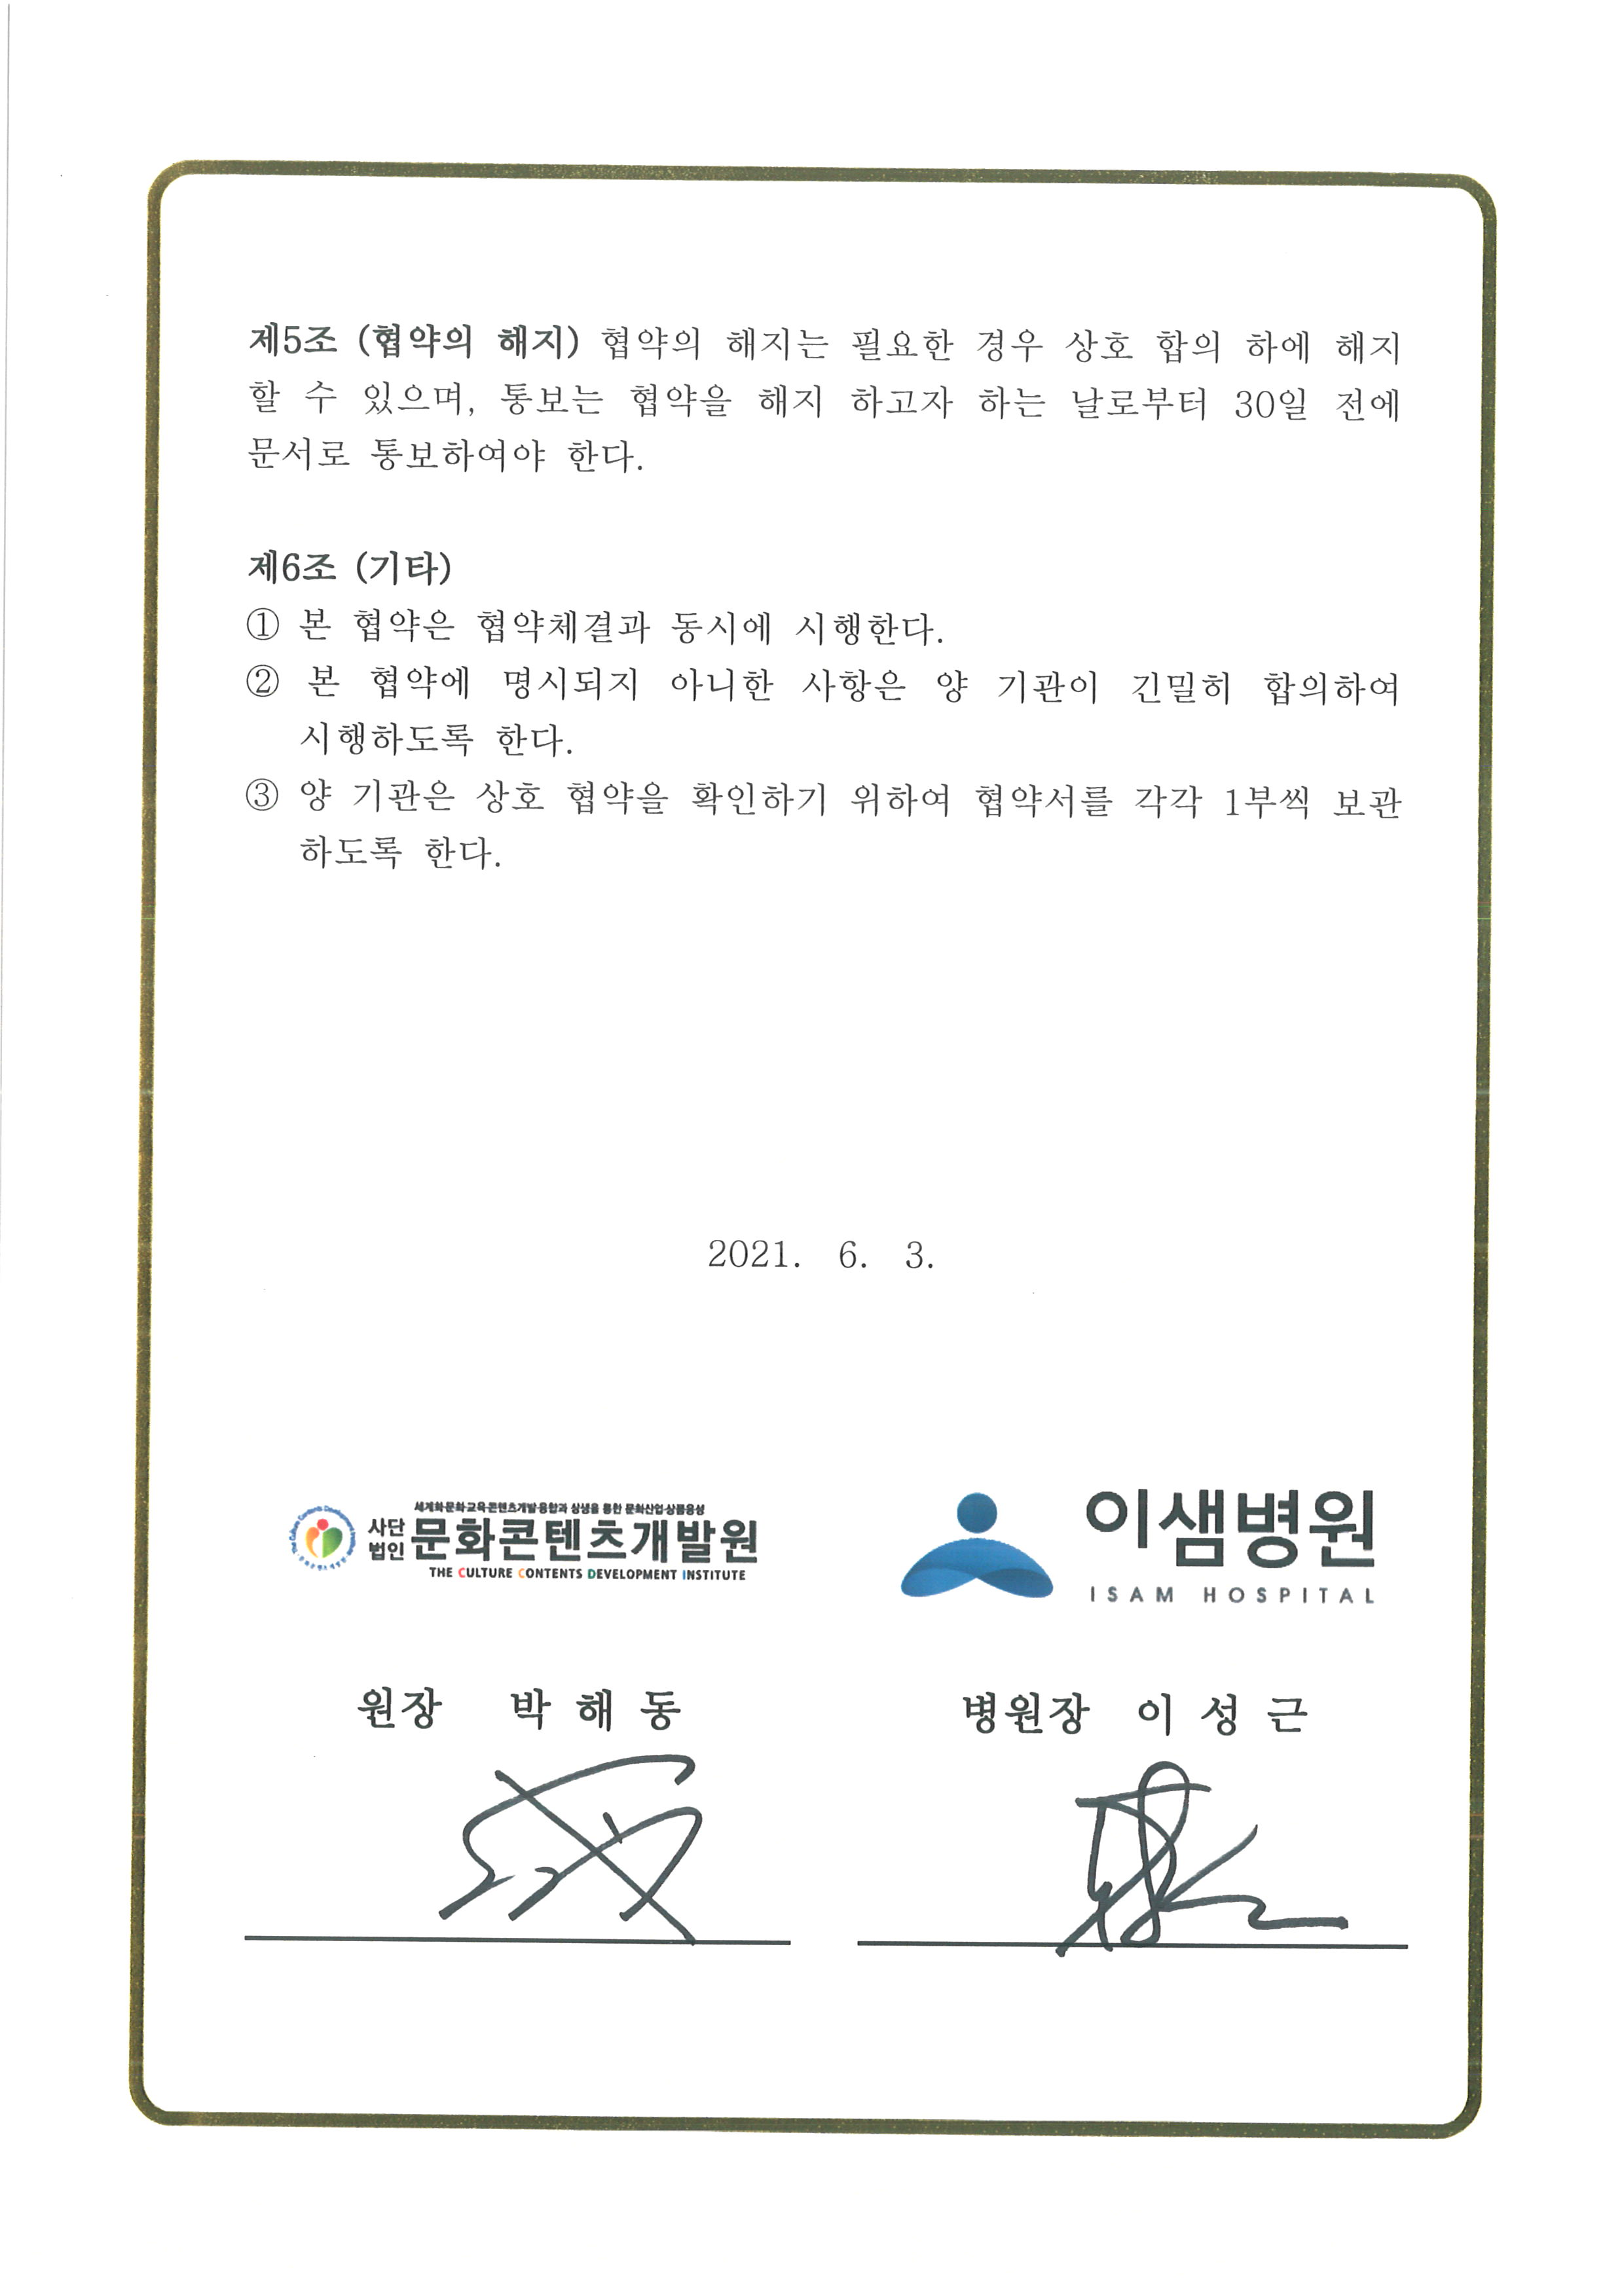 제5조 (협약의 해지) 협약의 해지는 필요한 경우 상호 합의 하에 해지
할 수 있으며, 통보는 협약을 해지 하고자 하는 날로부터 30일 전에
문서로 통보하여야 한다.
제6조 (기타)
① 본 협약은 협약체결과 동시에 시행한다.
② 본 협약에 명시되지 아니한 사항은 양 기관이 긴밀히 합의하여
시행하도록 한다.
③ 양 기관은 상호 협약을 확인하기 위하여 협약서를 각각 1부씩 보관
하도록 한다.
2021. 6. 3.
세계화·문화·교육·콘텐츠개발·융합과 상생을 통한 문화산업·상품융성
사단
법인
문화콘텐츠개발원
THE CULTURE CONTENTS DEVELOPMENT INSTITUTE
이샘병원
ISAM HOSPITAL
원장 박 해 동
병원장 이 성 근